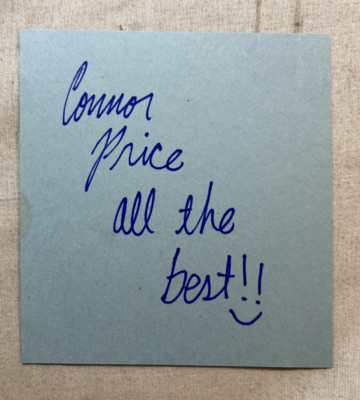 Connor
Price
all the
best!!